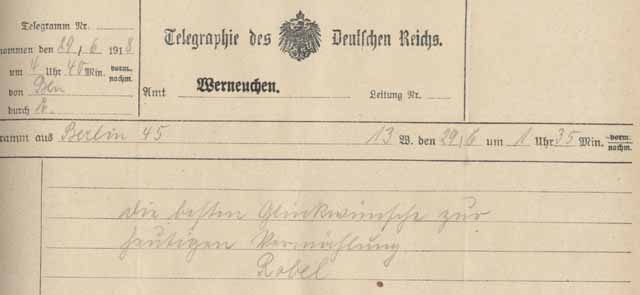 Telegramm Nr.
nommen den 29/6 1918
um 4 Uhr 40 Min. vorm. nachm.
von Bln
durch
Telegraphie des Deutschen Reichs.
Amt Werneuchen. Leitung Nr.
ramm aus Berlin 45 13 W. den 29/6 um 1 Uhr 35 Min. vorm. nachm.
die besten Glückwünsche zur
heutigen Vermählung
Robel